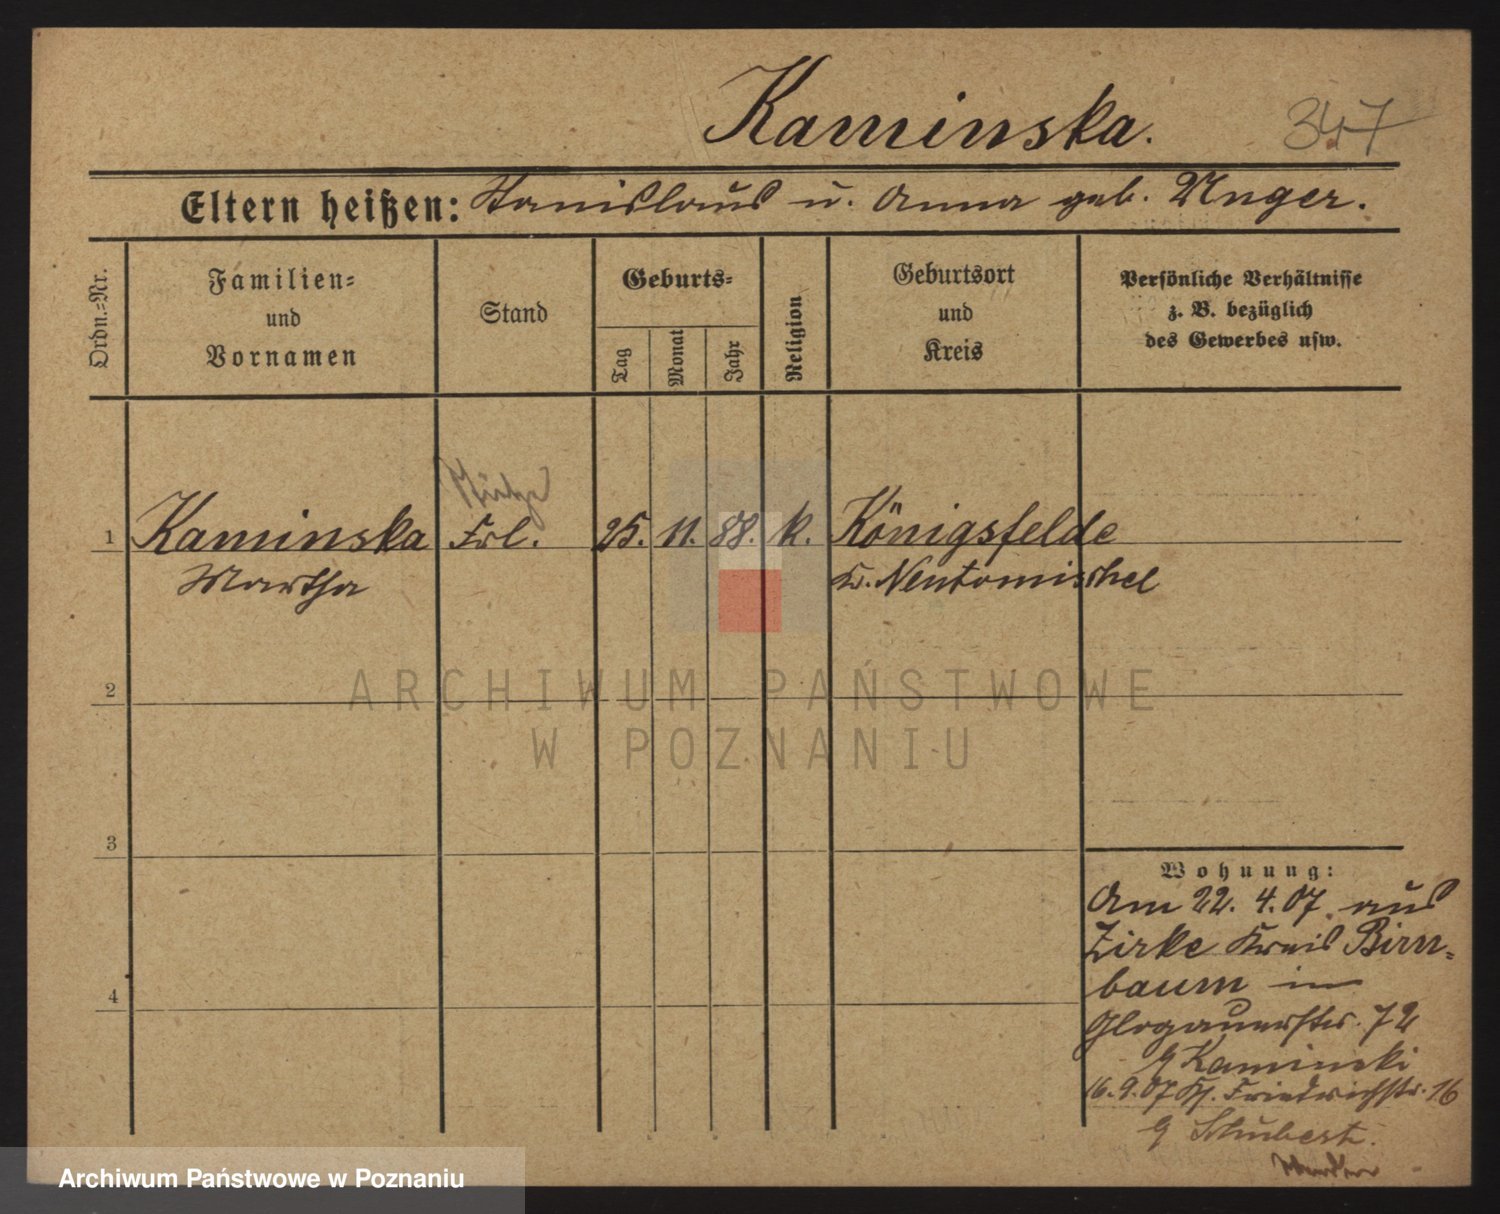 Kaminska. 347
Eltern heißen: Stanislaus u. Anna geb. Unger.
Ordn.-Nr.
Familien-
und
Vornamen
Stand
Geburts-
Tag
Monat
Jahr
Religion
Geburtsort
und
Kreis
Persönliche Verhältnisse
z. B. bezüglich
des Gewerbes usw.
Stütze
1 Kaminska Frl. 25. 11. 88. k. Königsfelde
Martha Kr. Neutomischel
2
ARCHIWUM PAŃSTWOWE
W POZNANIU
3
4
Wohnung:
Am 22. 4. 07. aus
Zirke Kreis Birn-
baum in
Glogauerstr. 72
Kaminski
16. 9. 07 Kl. Friedrichstr. 16
Schubert.
Archiwum Państwowe w Poznaniu